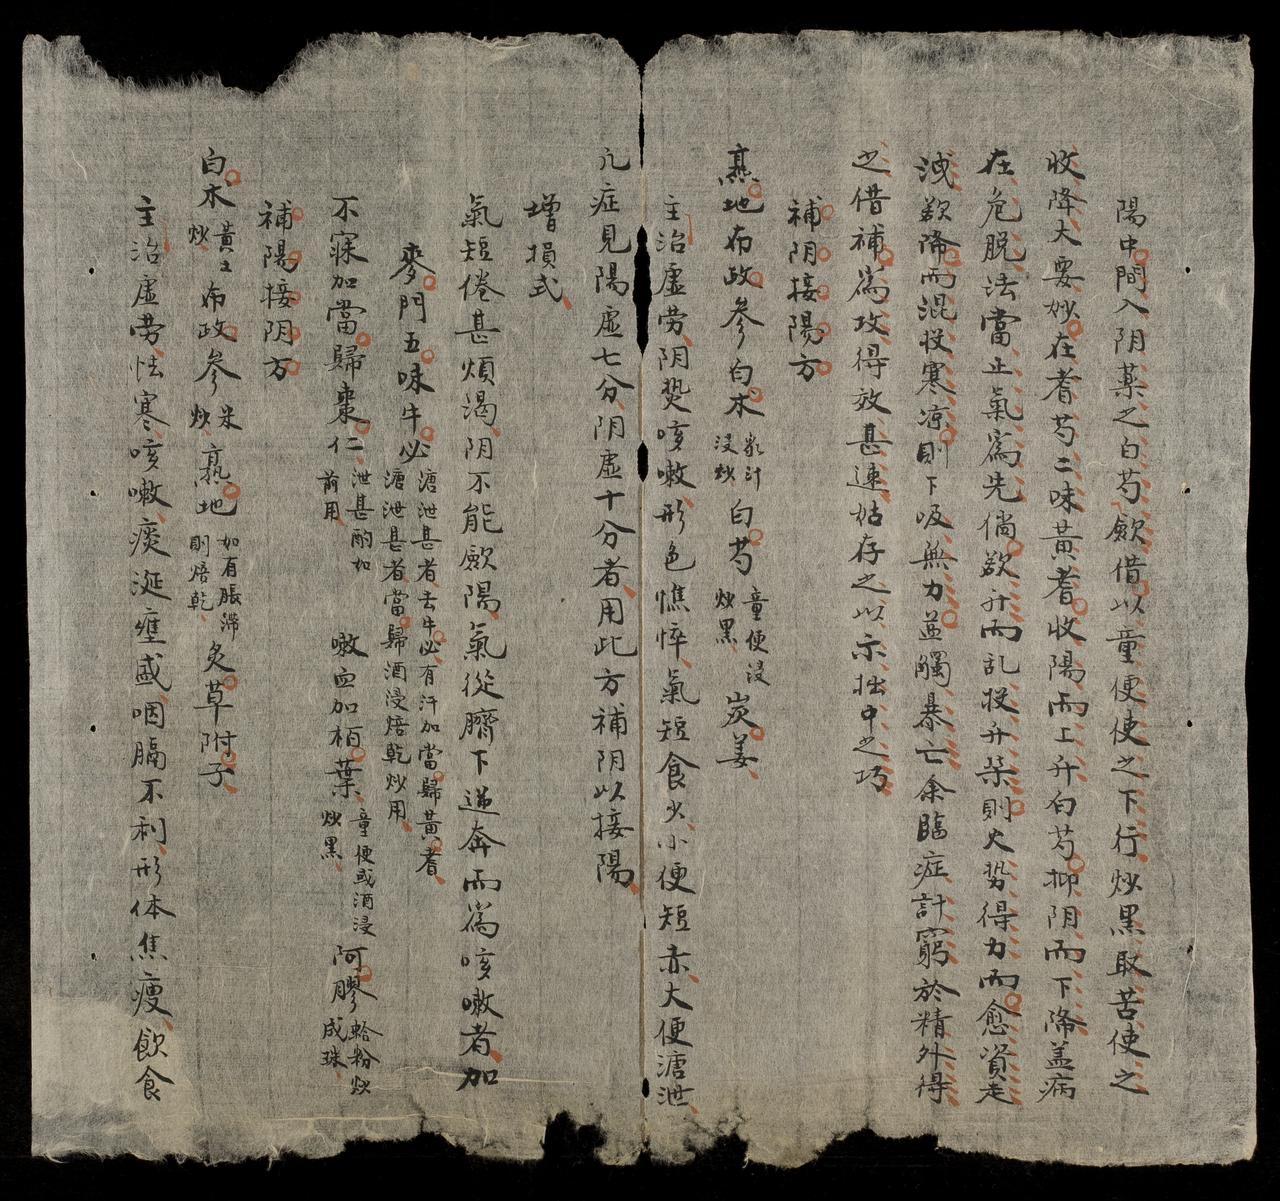 陽中間入阴薬之白芍斂借以童便使之下行炒黒取苦使之
收降大要妙在耆芍二味黃耆收陽而上升白芍抑阴而下降盖病
在危脱法當止氣為先倘欲升而乱投升柴則火势得力而愈資走
洩欲降而混投寒凉則下吸無力益觸暴亡余臨症計窮於精外得
之借補為攻得效甚速姑存之以示拙中之巧
補阴接陽方
熟地布政參白朮 浸炒 白芍 童便浸 炒黒 炭姜
主治虚劳阴𤍠咳嗽形色憔悴氣短食少小便短赤大便溏泄
凢症見陽虚七分阴虚十分者用此方補阴以接陽
增損式
氣短倦甚煩渴阴不能斂陽氣從臍下逆奔而為咳嗽者加
麥門五味牛必 溏泄甚者去牛必有汗加當歸黃耆 溏泄甚者當歸酒浸焙乾炒用
不寐加當歸棗仁 泄甚酌加 前用 嗽血加栢葉 童便或酒浸 炒黒 阿膠 蛤粉炒 成珠
補陽接阴方
白朮 黃土 炒 布政參 米 炒 熟地 如有脹滞 則焙乾 炙草附子
主治虚劳怯寒咳嗽痰涎壅盛咽膈不利形体焦瘦飲食